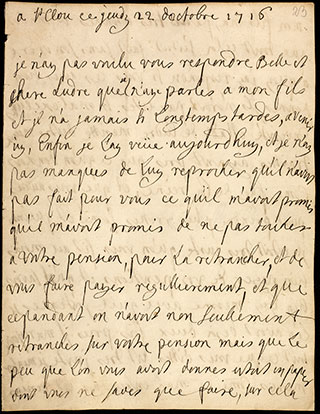 a St Clou ce jeudy 22 doctobre 1716
je nay pas voulu vous respondre Belle et
chere Ludre que je n'aye parles a mon fils
et il na jamais si longtemps tardes, a venir
icy, Enfin je lay veüe aujourdhuy, et je nay
pas manques de luy reprocher quil navoit
pas fait pour vous ce quil mavoit promis
quil mavoit promis de ne pas toucher
a vostre pension, pour La retrancher, et de
vous faire payer regullierement, et que
cepandant on navoit non seullement
retranches sur vostre pension mais que Le
peu que Lon vous avoit donnes estoit en papier
dont vous ne saves que faire, sur cela